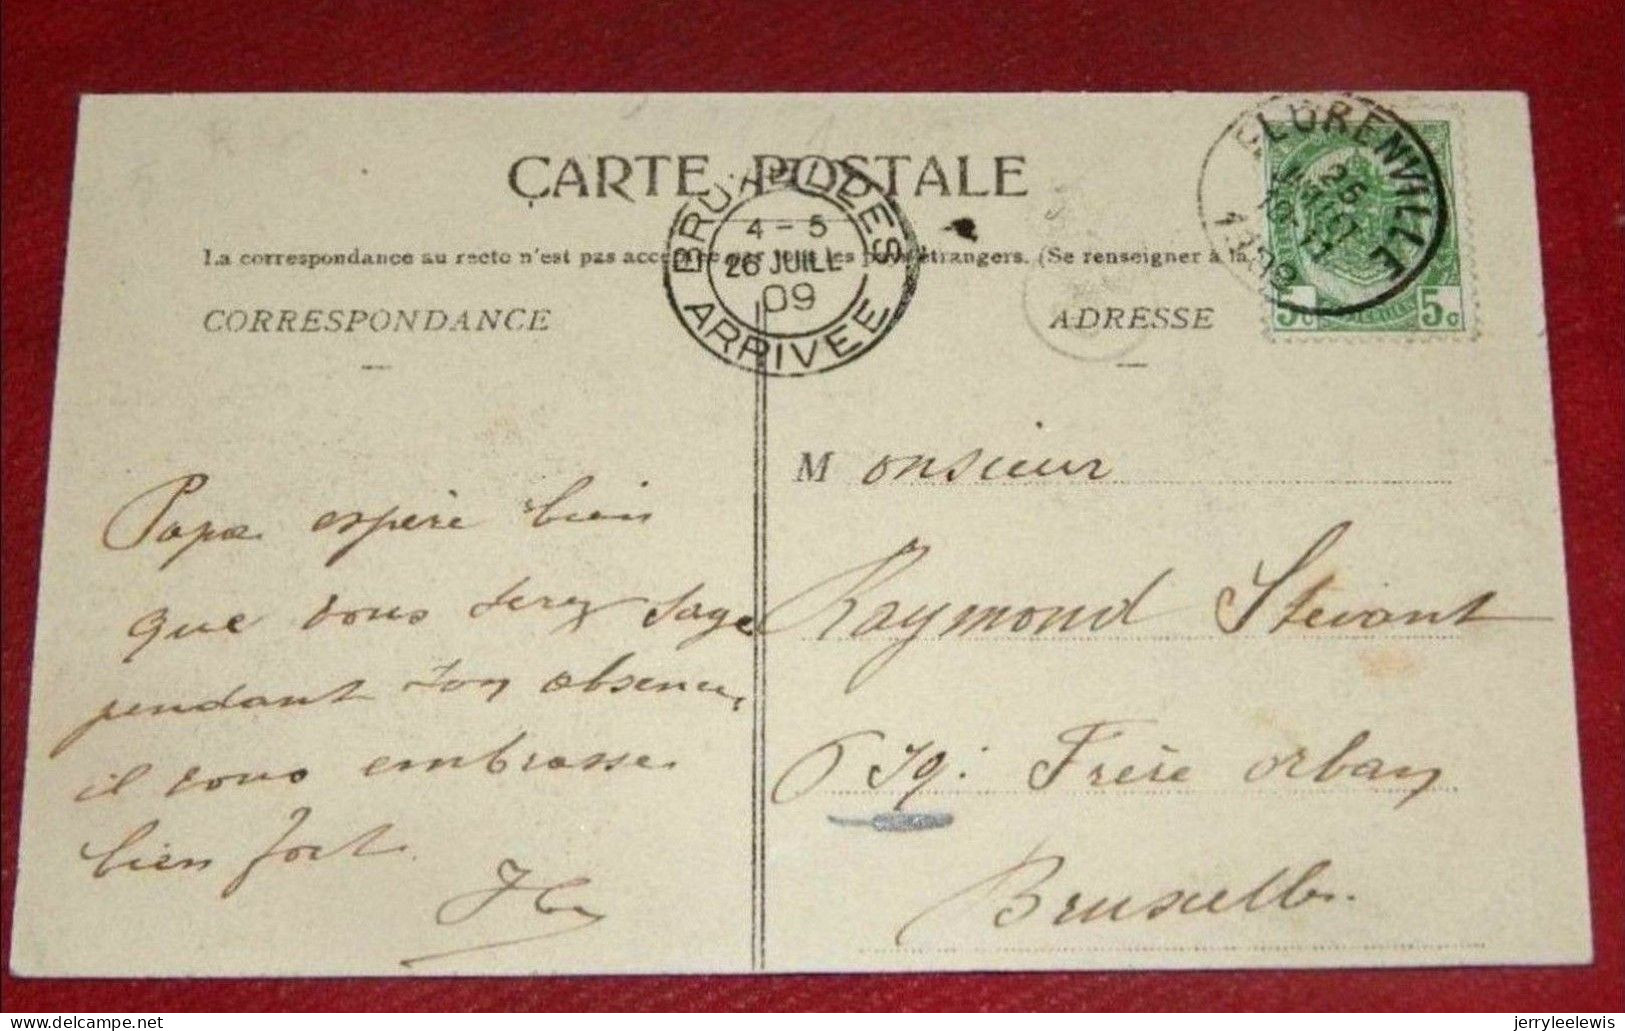 CARTE POSTALE
BRUXELLES
4 - 5
26 JUILL
09
ARRIVEE
FLORENVILLE
25
JUIL
1909
La correspondance au recto n'est pas acceptée par tous les pays étrangers. (Se renseigner à la
CORRESPONDANCE
ADRESSE
5c
5c
Papa espère bien
que vous serez sage
pendant son absence,
il vous embrasse
bien fort.
Monsieur
Raymond Stevant
79. Frère orban
Bruxelles.
delcampe.net
jerryleelewis